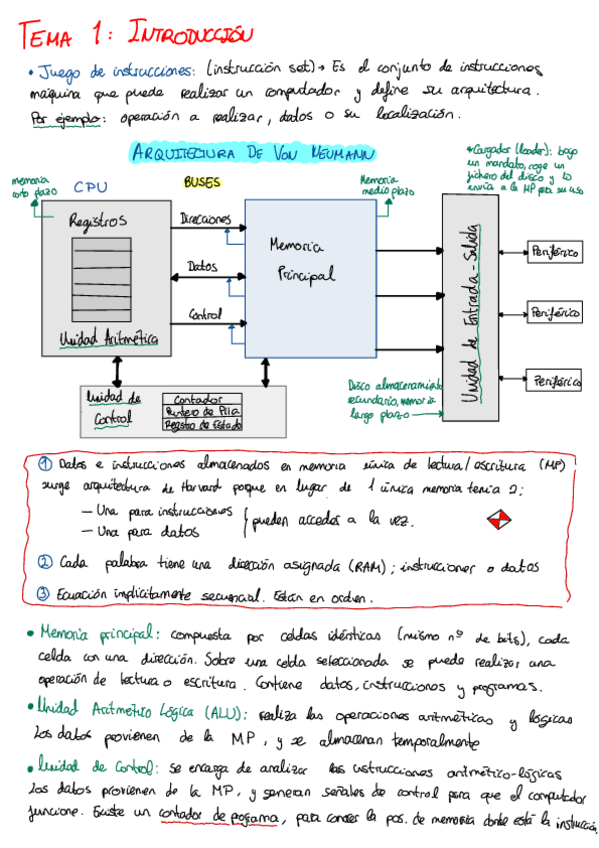 TEMA 1: INTRODUCCIÓN
• Juego de instrucciones: (instrucción set) → Es el conjunto de instrucciones
máquina que puede realizar un computador y define su arquitectura.
Por ejemplo: operación a realizar, datos o su localización.
ARQUITECTURA DE VON NEUMANN
*Cargador (loader): bajo
un mandato, coge un
fichero del disco y lo
envía a la MP para su uso
memoria
corto plazo
CPU
BUSES
Memoria
medio plazo
Registros
Unidad Aritmética
Direcciones
Datos
Control
Memoria
Principal
Unidad de Entrada-Salida
Periférico
Periférico
Periférico
Unidad de
Control
Contador
Puntero de Pila
Registro de Estado
Disco almacenamiento
secundario, memoria
largo plazo
① Datos e instrucciones almacenados en memoria única de lectura/escritura (MP)
surge arquitectura de Harvard poque en lugar de 1 única memoria tenía 2:
— Una para instrucciones
— Una para datos
pueden acceder a la vez.
② Cada palabra tiene una dirección asignada (RAM); instrucciones o datos
③ Ecuación implícitamente secuencial. Están en orden.
• Memoria principal: compuesta por celdas idénticas (mismo nº de bits), cada
celda con una dirección. Sobre una celda seleccionada se puede realizar una
operación de lectura o escritura. Contiene datos, instrucciones y programas.
• Unidad Aritmético Lógica (ALU): realiza las operaciones aritméticas y lógicas
Los datos provienen de la MP, y se almacenan temporalmente
• Unidad de Control: se encarga de analizar las instrucciones aritmético-lógicas
Los datos provienen de la MP, y generan señales de control para que el computador
funcione. Existe un contador de programa, para conocer la pos. de memoria donde está la instrucción.